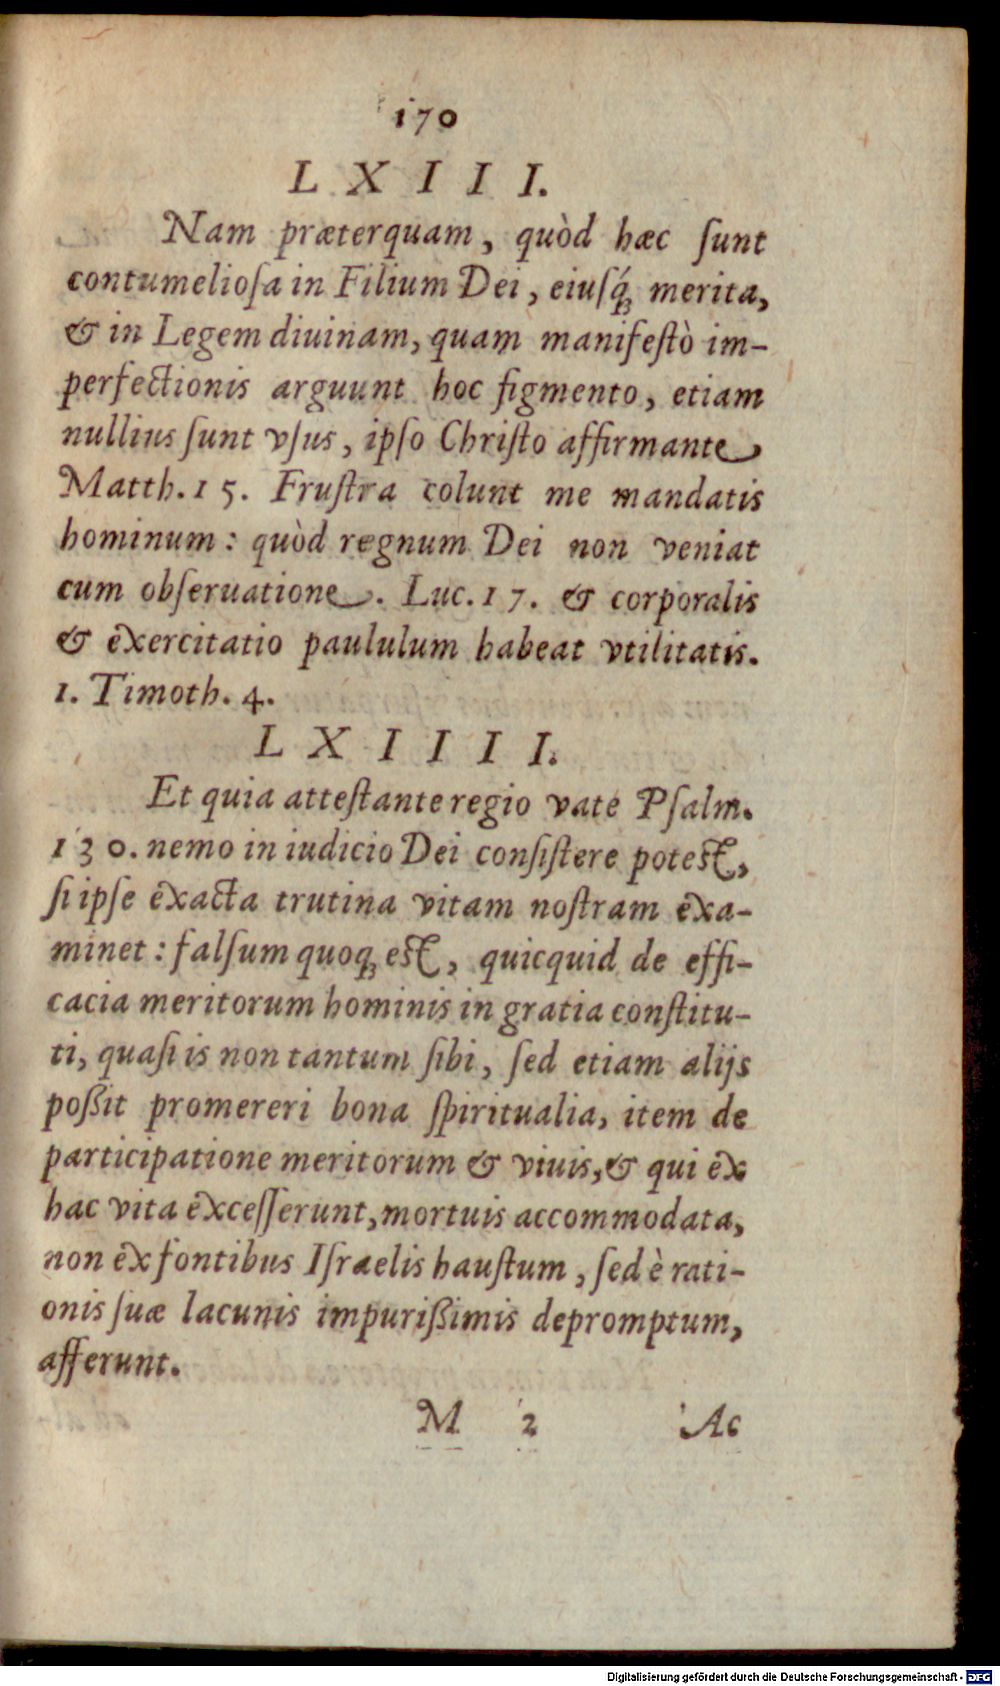 170
L X I I I.
Nam præterquam, quòd hæc ſunt
contumelioſa in Filium Dei, eiuſq́; merita,
& in Legem diuinam, quam manifeſtò im-
perfectionis arguunt hoc figmento, etiam
nullius ſunt vſus, ipſo Chriſto affirmante
Matth. 15. Fruſtra colunt me mandatis
hominum: quòd regnum Dei non veniat
cum obſeruatione. Luc. 17. & corporalis
& exercitatio paululum habeat vtilitatis.
1. Timoth. 4.
L X I I I I.
Et quia atteſtante regio vate Pſalm.
130. nemo in iudicio Dei conſiſtere poteſt,
ſi ipſe exacta trutina vitam noſtram exa-
minet: falſum quoq; eſt, quicquid de effi-
cacia meritorum hominis in gratia conſtitu-
ti, quaſi is non tantum ſibi, ſed etiam alijs
poßit promereri bona ſpiritualia, item de
participatione meritorum & viuis, & qui ex
hac vita exceſſerunt, mortuis accommodata,
non ex fontibus Iſraelis hauſtum, ſed è rati-
onis ſuæ lacunis impurißimis depromptum,
afferunt.
M 2 Ac
Digitalisierung gefördert durch die Deutsche Forschungsgemeinschaft - DFG